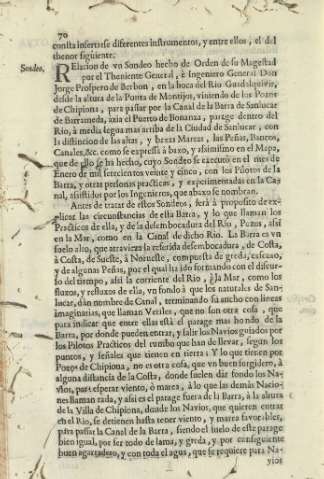 70
consta insertarse diferentes instrumentos, y entre ellos, el del
thenor siguiente.
Sondeo,
Relacion de vn Sondeo hecho de Orden de su Magestad
por el Theniente General, è Ingeniero General Don
Jorge Prospero de Berbon, en la boca del Rio Guadalquivir,
desde la altura de la Punta de Montijos, viniendo de los Pozos
de Chipiona, para passar por el Canal de la Barra de Sanlucar
de Barrameda, àzia el Puerto de Bonanza, parage dentro del
Rio, à media legua mas arriba de la Ciudad de Sanlucar, con
la distincion de las altas, y bexas Mareas, las Peñas, Bancos,
Canales, &c. como se expressa à baxo, y assimismo en el Mapa,
que de ello se hà hecho, cuyo Sondeo se executò en el mes de
Enero de mil setecientos veinte y cinco, con los Pilotos de la
Barra, y otras personas practicas, y experimentadas en la Ca-
nal, assistidos por los Ingenieros, que abaxo se nombran.
Antes de tratar de estos Sondeos, serà à proposito de ex-
plicar las circunstancias de esta Barra, y lo que llaman los
Practicos de ella, y de la desembocadura del Rio, Pozos, assi
en la Mar, como en la Canal de dicho Rio. La Barra es vn
suelo alto, que atraviesa la referida desembocadura, de Costa,
à Costa, de Sueste, à Noroeste, compuesta de greda, cascajo,
y de algunas Peñas, por el qual hà ido formando con el discur-
so del tiempo, assi la corriente del Rio, è la Mar, como los
fluxos, y refluxos de ella, vn fondo à que los naturales de San-
lucar, dàn nombre de Canal, terminando su ancho con lineas
imaginarias, que llaman Veriles, que no son otra cosa, que
para indicar que entre ellas està el parage mas hondo de la
Barra, por donde pueden entrar, y salir los Navios guiados por
los Pilotos Practicos del rumbo que han de llevar, segun los
puntos, y señales que tienen en tierra: Y lo que tienen por
Pozos de Chipiona, no es otra cosa, que vn buen surgidero, à
alguna distancia de la Costa, donde suelen dàr fondo los Na-
vios, para esperar viento, ò marea, à lo que las demàs Nacio-
nes llaman rada, y assi es el parage fuera de la Barra, à la altura
de la Villa de Chipiona, donde los Navios, que quieren entrar
en el Rio, se detienen hasta tener viento, y marea favorables,
para passar la Canal de la Barra, siendo el suelo de este parage
bien igual, por ser todo de lama, y greda, y por consiguiente
buen agarradero, y con toda el agua, que se requiere para Na-
vios